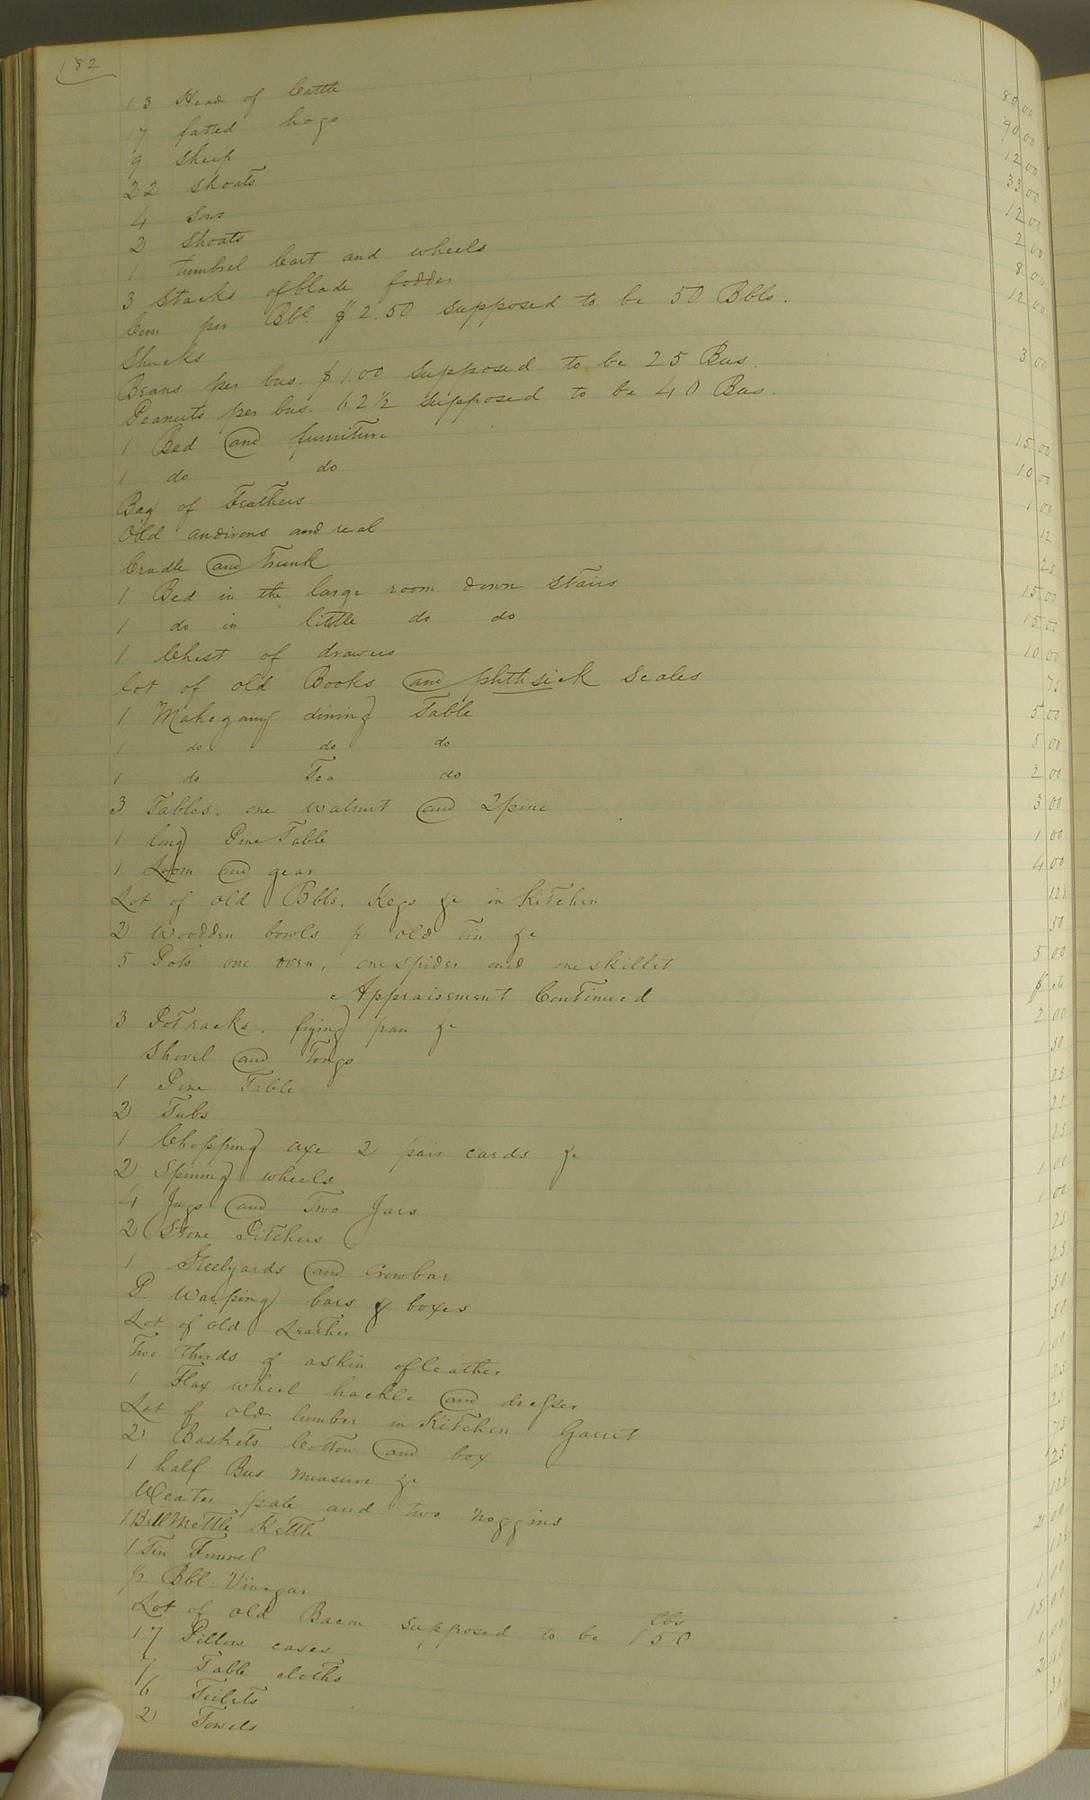 182
13 Head of Cattle 80 00
17 fatted hogs 90 00
9 Sheep 12 00
22 Shoats 33 00
4 Sows 12 00
2 Shoats 2 00
1 tumbrel Cart and wheels 8 00
3 Stacks of blade fodder 12 00
Corn per Bbl. $2.50 supposed to be 50 Bbls.
Shucks 3 00
Beans per bus. $1.00 supposed to be 25 Bus.
Peanuts per bus. 62½ supposed to be 40 Bus.
1 Bed and furniture 15 00
1 do do 10 00
Bag of Feathers 1 00
Old andirons and real 12
Cradle and Trunk 25
1 Bed in the large room down stairs 15 00
1 do in little do do 15 00
1 Chest of drawers 10 00
Lot of old Books and phthsick Scales 75
1 Mahogany dining Table 5 00
1 do do do 5 00
1 do Tea do 2 00
3 Tables, one walnut and 2 pine 3 00
1 long Pine Table 1 00
1 Loom and gear 4 00
Lot of old Bbls. Kegs &c in Kitchen 12½
2 Wooden bowls p old tin &c 50
5 Pots one oven, one spider and one skillet 5 00
Appraisement Continued $ cts
3 Pot racks, frying pan &c 2 00
Shovel and Tongs 50
1 Pine Table 25
2 Tubs 25
1 Chopping axe 2 pair cards &c
2 Spinning wheels
4 Jugs and Two Jars
2 Stone Pitchers
1 Steelyards and Crowbar
P. Warping bars & boxes
Lot of old Leather
Two thirds of a skin of leather
1 Flax wheel hackle and dresser
Lot of old lumber in Kitchen Garret
2 Baskets Cotton and box
1 half Bus measure &c
Water pale and two noggins
1 Bell Mettle Kettle
1 Tin Funnel
½ Bbl. Vinegar
Lot of old Bacon supposed to be 150 lbs
17 Pillow cases
7 Table cloths
6 Toilets
2 Towels